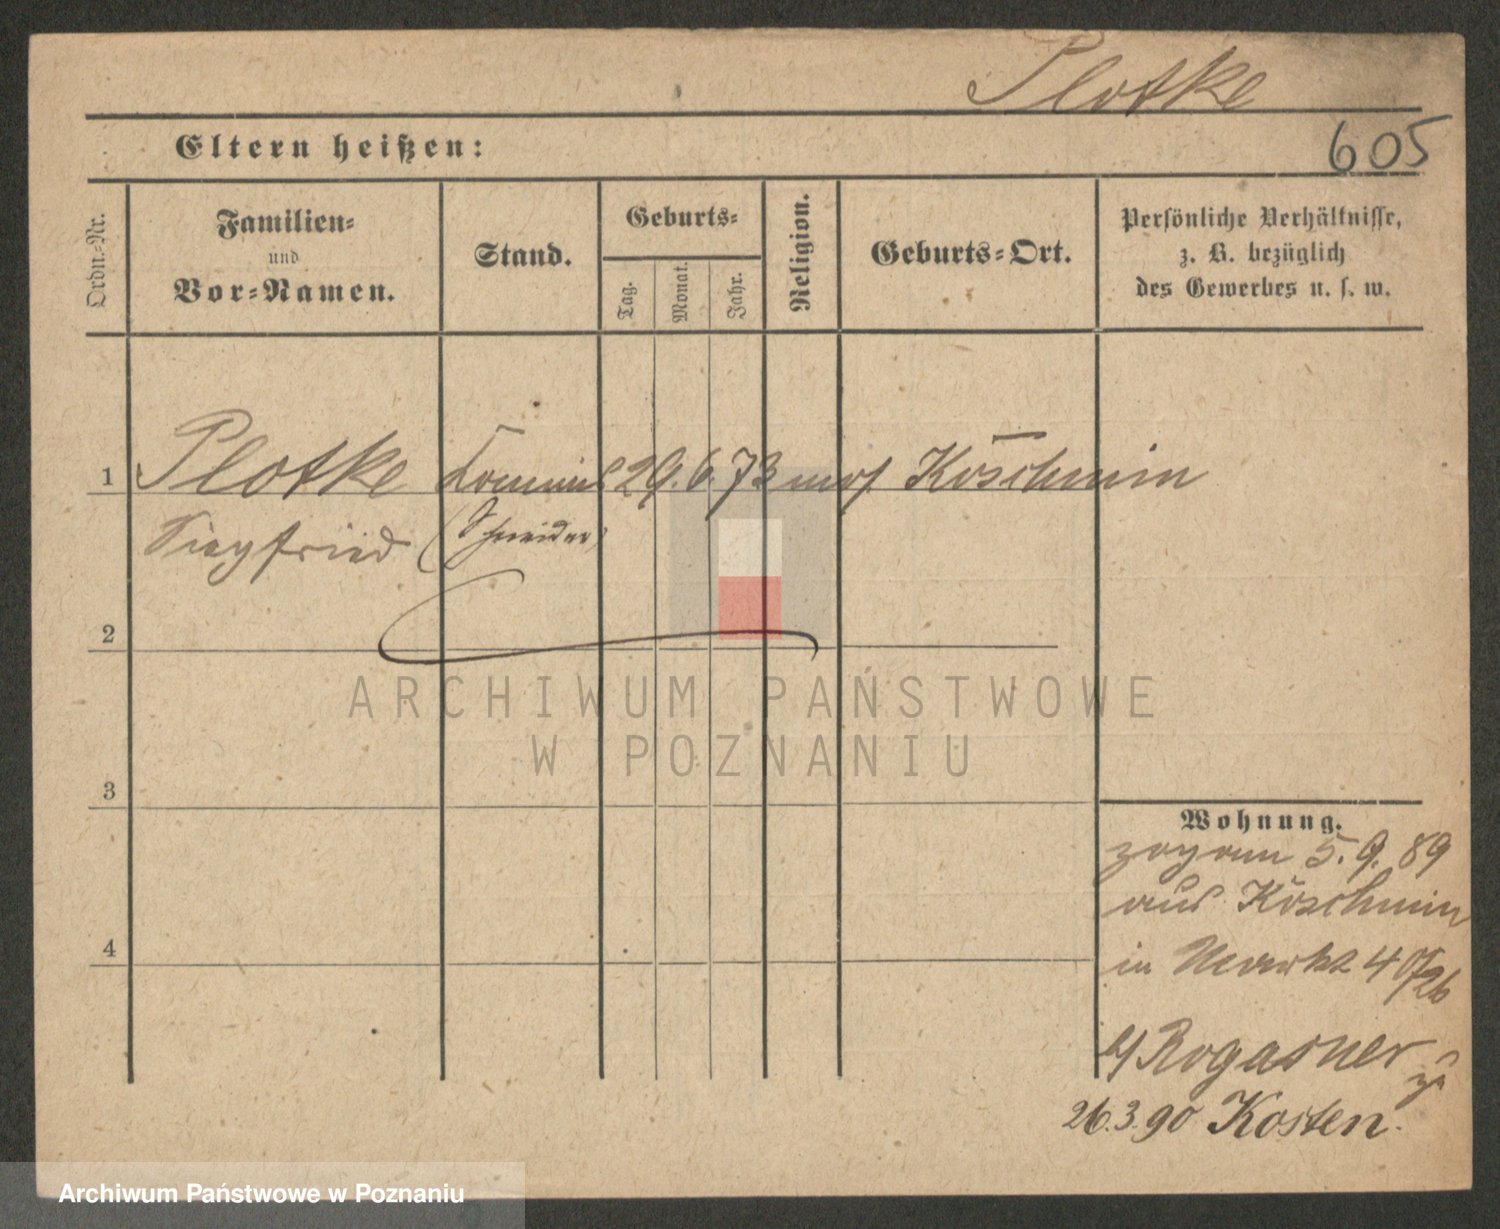 Plotke
605
Eltern heißen:
Ordn.-Nr.
Familien-
und
Vor-Namen.
Stand.
Geburts-
Tag.
Monat.
Jahr.
Religion.
Geburts-Ort.
Persönliche Verhältnisse,
z. B. bezüglich
des Gewerbes u. s. w.
1 Plotke 29. 6. 73 mos. Koschmin
Siegfried (Schneider)
2
3
4
Wohnung.
zog am 5. 9. 89
aus Koschmin
in Markt 40/26
b/ Rogasner
26.3.90 Kosten.
ARCHIWUM PAŃSTWOWE
W POZNANIU
Archiwum Państwowe w Poznaniu